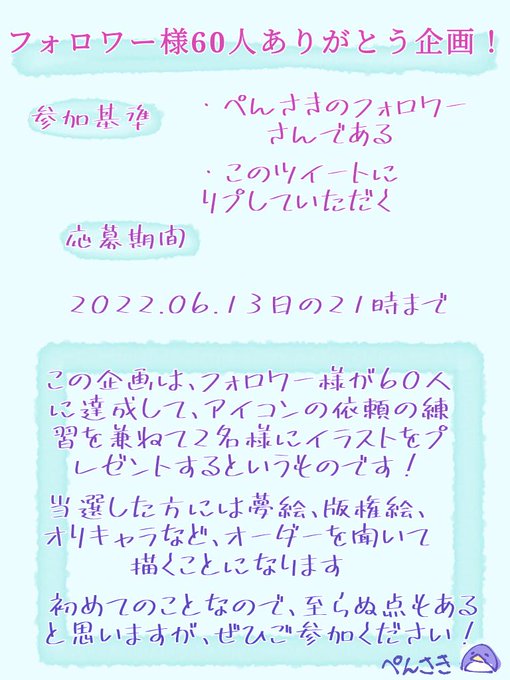 フォロワー様60人ありがとう企画！
参加基準
・ぺんさきのフォロワー
さんである
・このツイートに
リプしていただく
応募期間
2022.06.13日の21時まで
この企画は、フォロワー様が60人
に達成して、アイコンの依頼の練
習を兼ねて2名様にイラストをプ
レゼントするというものです！
当選した方には夢絵、版権絵、
オリキャラなど、オーダーを聞いて
描くことになります
初めてのことなので、至らぬ点もある
と思いますが、ぜひご参加ください！
ぺんさき